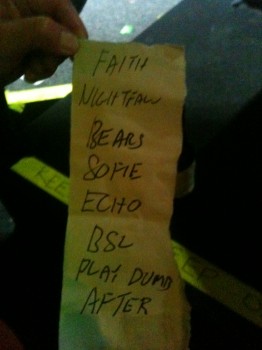 FAITH
NIGHTFALL
BEARS
SOFIE
ECHO
BSL
PLAY DUMB
AFTER